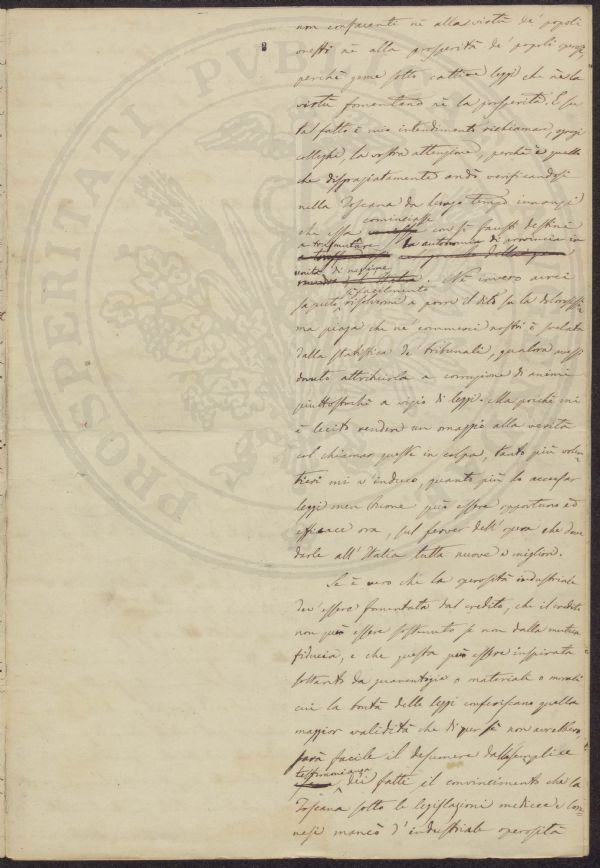 non confacenti nè alla virtù de' popoli
onesti nè alla prosperità de' popoli
perchè geme sotto cattive leggi che nè la
virtù fomentano nè la prosperità. E su
tal fatto è mio intendimento richiamar,
colleghi, la vostra attenzione, perchè è quello
che disgraziatamente andò verificandosi
nella Toscana da lungo tempo innanzi
che essa cominciasse con sì fausti destini
a trasmutare la autonomia di provincia in
unità di nazione. Nè invero avrei
saputo sì facilmente risolvermi a porre il dito su la dolorosissi-
ma piaga che ne' commerci nostri è svelata
dalla statistica de' tribunali, qualora avessi
dovuto attribuirla a corruzione di animi
piuttostochè a vizio di leggi. Ma poichè mi
è lecito rendere un omaggio alla verità
col chiamar queste in colpa, tanto più volen-
tieri mi v'induco, quanto più lo accusar
leggi men buone può essere opportuno ed
efficace ora, sul fervor dell'opera che deve
darle all'Italia tutta nuove e migliori.
Se è vero che la operosità industriale
dev'essere fomentata dal credito, che il credito
non può essere sostenuto se non dalla mutua
fiducia, e che questa può essere inspirata
soltanto da guarentigie o materiali o morali
cui la bontà delle leggi conferiscano quella
maggior validità che di per sè non avrebbero,
sarà facile il desumere dalla semplice
testimonianza dei fatti il convincimento che la
Toscana sotto le legislazioni medicee e lore-
nesi mancò d'industriale operosità
PROPRIETATI PVBLICA